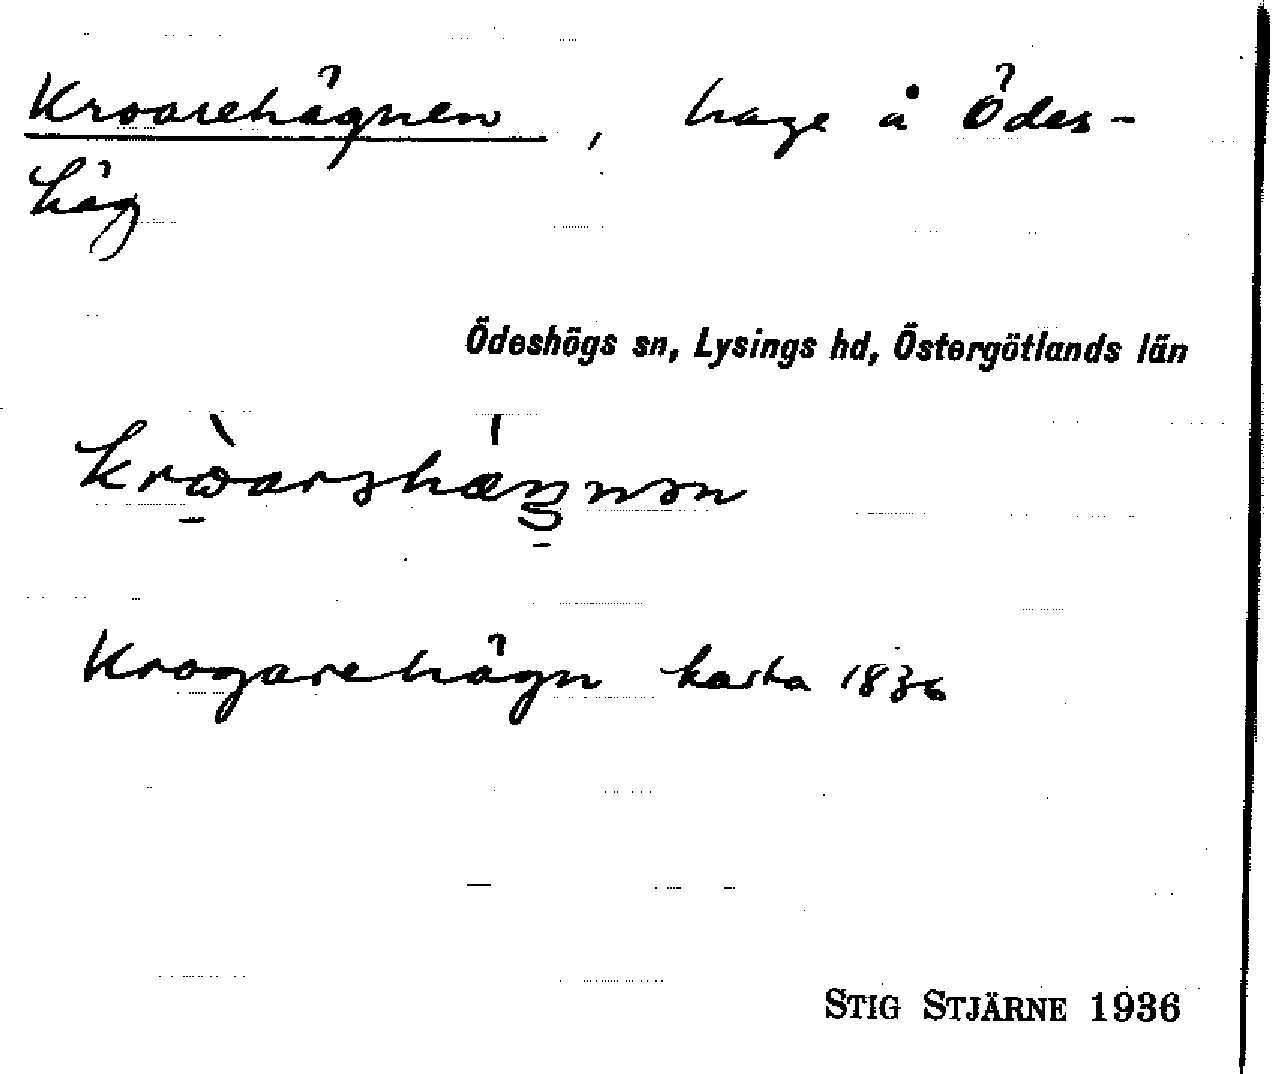 Kroarehägnen, hage å Ödes-
hög
Ödeshögs sn, Lysings hd, Östergötlands län
Krogarehägn karta 1836
STIG STJÄRNE 1936